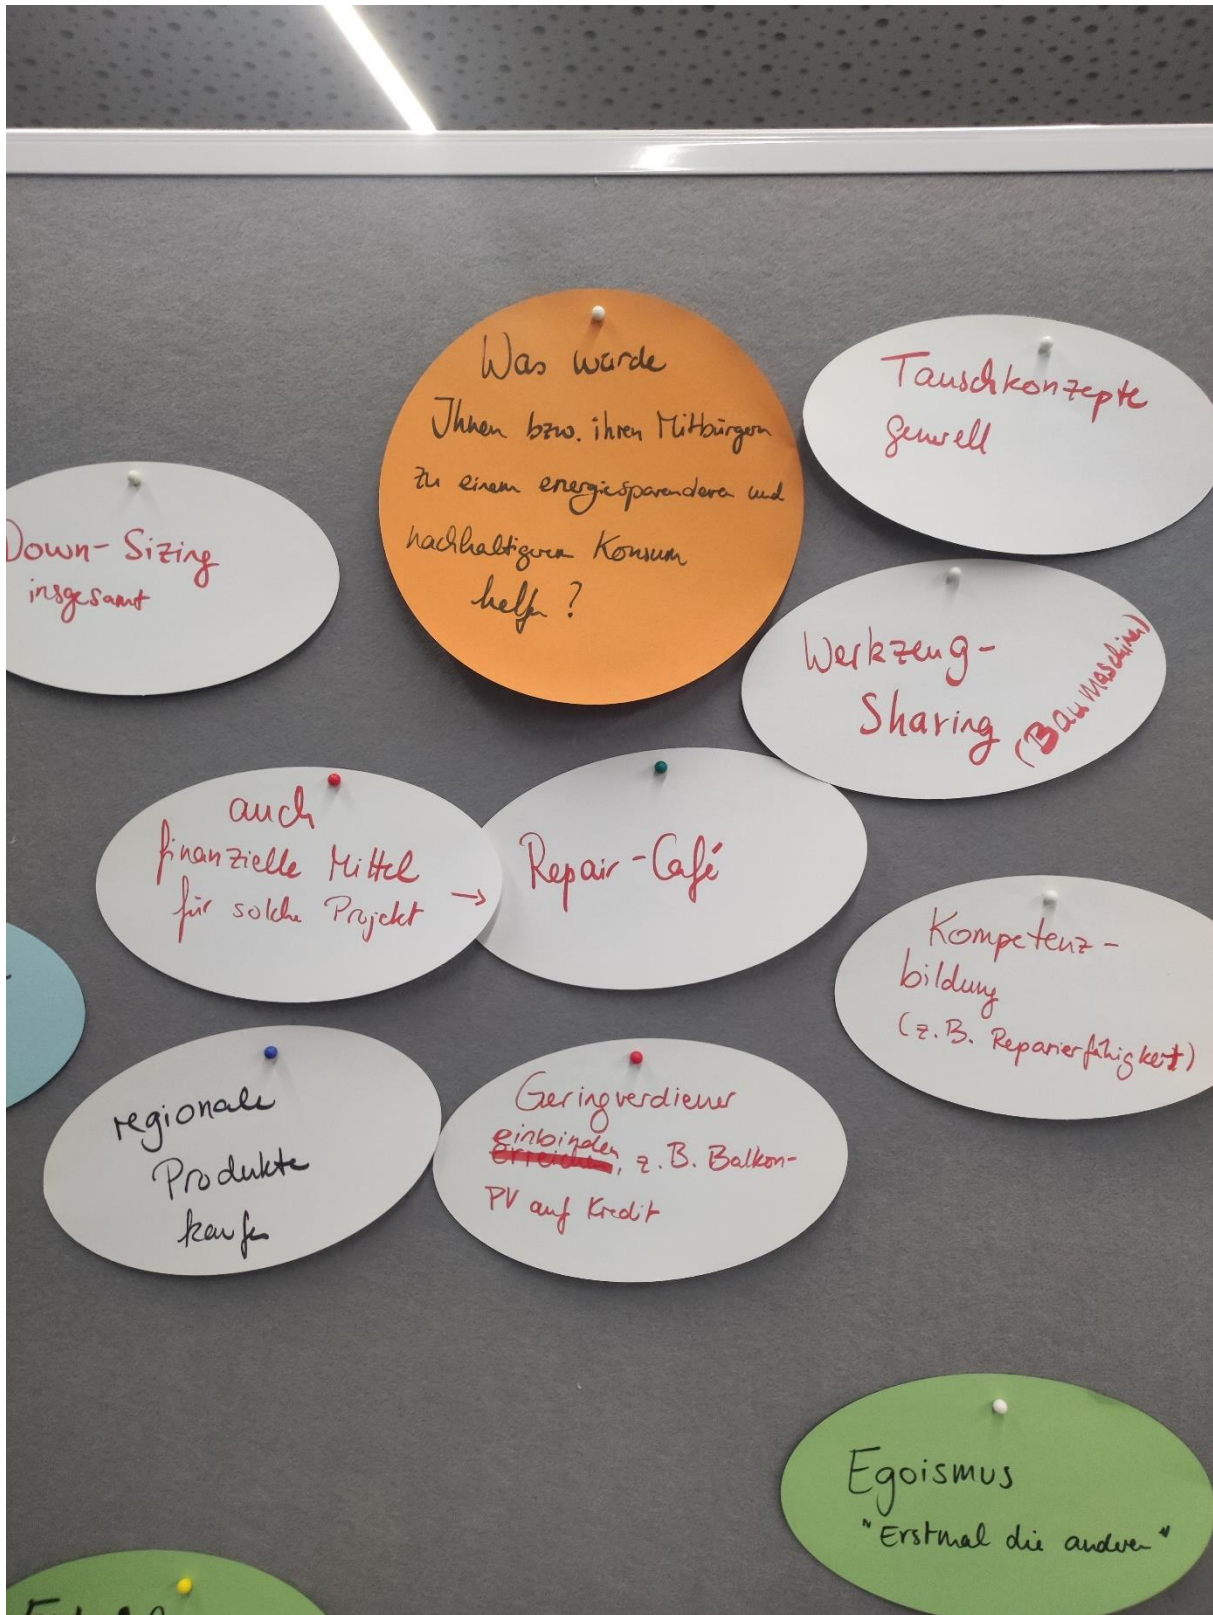 Was würde
Ihnen bzw. ihren Mitbürgern
zu einem energiesparenderen und
nachhaltigeren Konsum
helfen?
Tauschkonzepte
generell
Down-Sizing
insgesamt
Werkzeug-
Sharing (Baumaschinen)
auch
finanzielle Mittel
für solche Projekt →
Repair-Café
Kompetenz-
bildung
(z.B. Reparierfähigkeit)
regionale
Produkte
kaufen
Geringverdiener
einbinden, z.B. Balkon-
PV auf Kredit
Egoismus
"Erstmal die anderen"